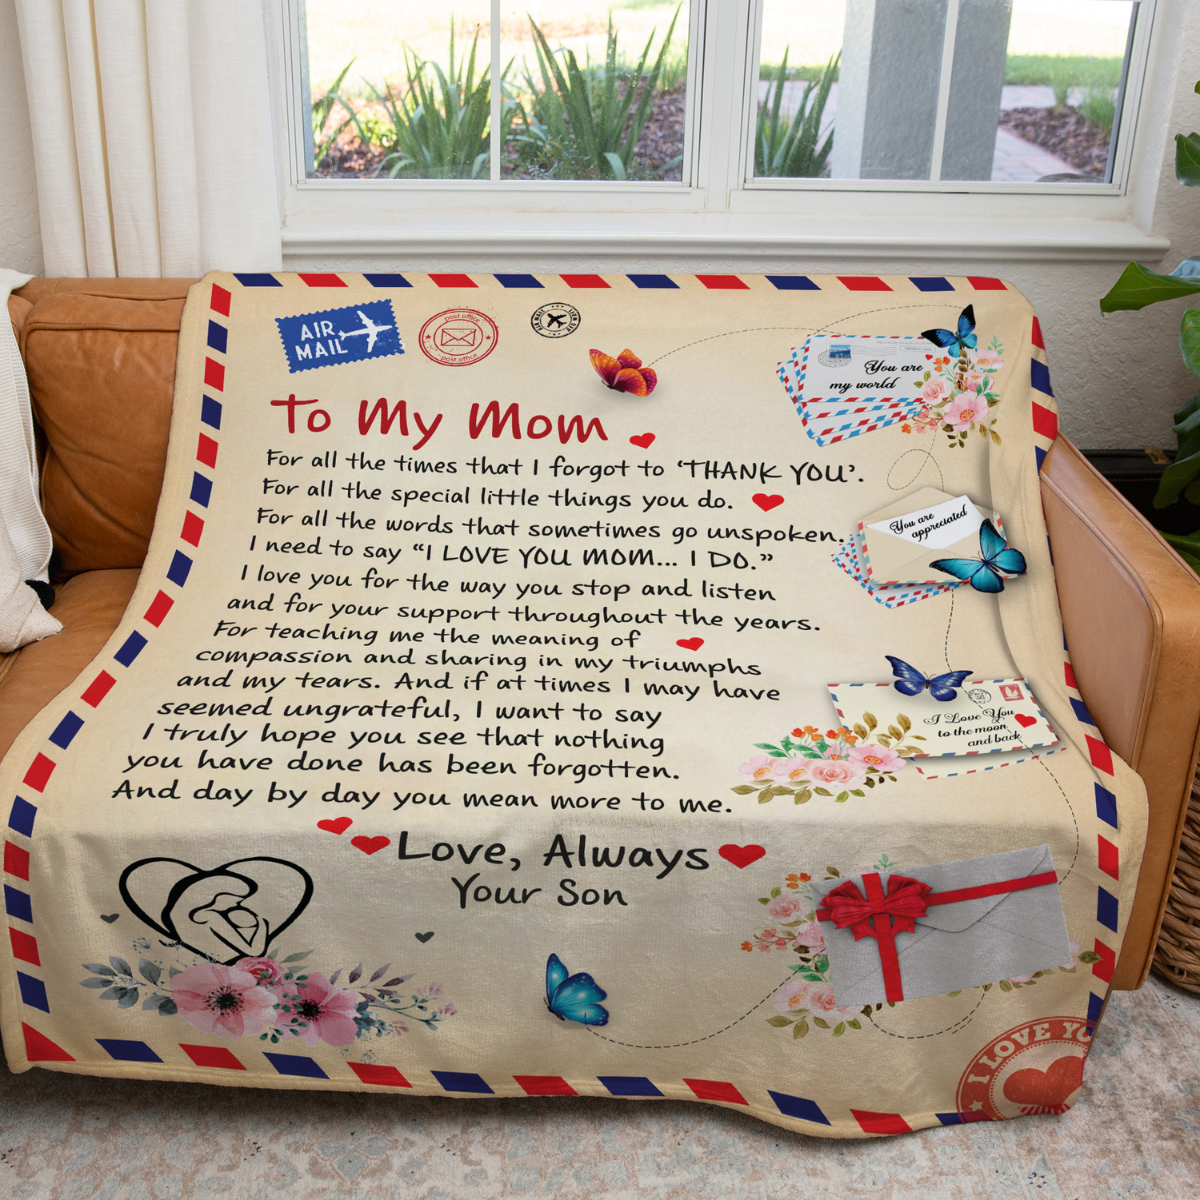 AIR
MAIL
post office
post office
You are
my world
To My Mom
For all the times that I forgot to ‘THANK YOU’.
For all the special little things you do.
For all the words that sometimes go unspoken.
I need to say “I LOVE YOU MOM... I DO.”
I love you for the way you stop and listen
and for your support throughout the years.
For teaching me the meaning of
compassion and sharing in my triumphs
and my tears. And if at times I may have
seemed ungrateful, I want to say
I truly hope you see that nothing
you have done has been forgotten.
And day by day you mean more to me.
Love, Always
Your Son
You are
appreciated
I Love You
to the moon
and back
I LOVE YO